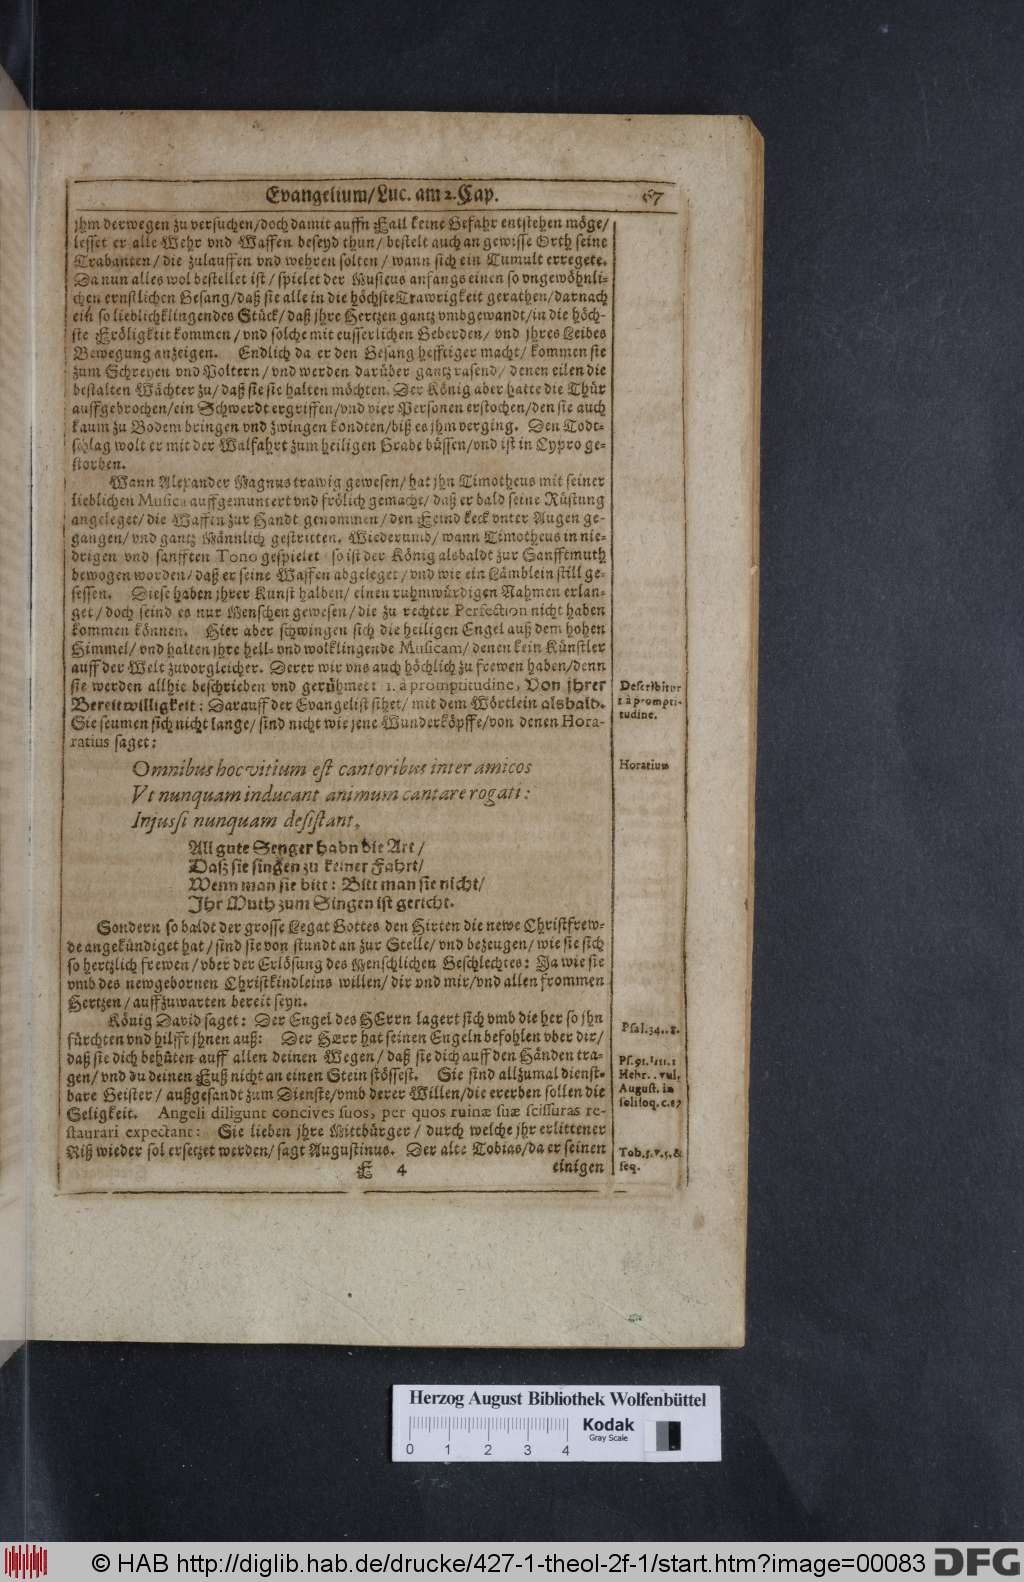 Evangelium/Luc. am 2. Cap. 67
jhm derwegen zu versuchen/doch damit auffn Fall keine Gefahr entstehen möge/
lesset er alle Wehr vnd Waffen beseyd thun/ bestelt auch an gewisse Orth seine
Trabanten/ die zulauffen vnd wehren solten/ wann sich ein Tumult erregete.
Da nun alles wol bestellet ist/ spielet der Musicus anfangs einen so vngewöhnli-
chen ernstlichen Gesang/daß sie alle in die höchste Trawrigkeit gerathen/darnach
ein so lieblichklingendes Stück/ daß jhre Hertzen gantz vmbgewandt/in die höch-
ste Fröligkeit kommen/ vnd solche mit eusserlichen Geberden/ vnd jhres Leibes
Bewegung anzeigen. Endlich da er den Gesang hefftiger macht/ kommen sie
zum Schreyen vnd Poltern/ vnd werden darüber gantz rasend/ denen eilen die
bestalten Wächter zu/ daß sie sie halten möchten. Der König aber hatte die Thür
auffgebrochen/ein Schwerdt ergriffen/vnd vier Personen erstochen/den sie auch
kaum zu Bodem bringen vnd zwingen kondten/biß es jhm verging. Den Todt-
schlag wolt er mit der Walfahrt zum heiligen Grabe büssen/vnd ist in Cypro ge-
storben.
Wann Alexander Magnus trawig gewesen/ hat jhn Timotheus mit seiner
lieblichen Musica auffgemuntert vnd frölich gemacht/ daß er bald seine Rüstung
angeleget/ die Waffen zur Handt genommen/ den Feind keck vnter Augen ge-
gangen/ vnd gantz Männlich gestritten. Wiederumb/ wann Timotheus in nie-
drigen vnd sanfften Tono gespielet so ist der König alsbaldt zur Sanfftmuth
bewogen worden/ daß er seine Waffen abgeleget/ vnd wie ein Lämblein still ge-
sessen. Diese haben jhrer Kunst halben/ einen ruhmwürdigen Nahmen erlan-
get/ doch seind es nur Menschen gewesen/ die zu rechter Perfection nicht haben
kommen können. Hier aber schwingen sich die heiligen Engel auß dem hohen
Himmel/ vnd halten jhre hell- vnd wolklingende Musicam/ denen kein Künstler
auff der Welt zuvorgleichen. Derer wir vns auch höchlich zu frewen haben/denn
sie werden allhie beschrieben vnd gerühmet 1. à promptitudine, Von jhrer
Bereitwilligkeit: Darauff der Evangelist sihet/ mit dem Wörtlein alsbald.
Sie seumen sich nicht lange/ sind nicht wie jene Wunderköpffe/von denen Hora-
ratius saget:
Omnibus hoc vitium est cantoribus inter amicos
Vt nunquam inducant animum cantare rogati:
Injussi nunquam desistant,
All gute Senger habn die Art/
Dasz sie singen zu keiner Fahrt/
Wenn man sie bitt: Bitt man sie nicht/
Jhr Muth zum Singen ist gericht.
Sondern so baldt der grosse Legat Gottes den Hirten die newe Christfrew-
de angekündiget hat/ sind sie von stundt an zur Stelle/ vnd bezeugen/ wie sie sich
so hertzlich frewen/ vber der Erlösung des Menschlichen Geschlechtes: Ja wie sie
vmb des newgebornen Christkindleins willen/ dir vnd mir/vnd allen frommen
Hertzen/ auffzuwarten bereit seyn.
König David saget: Der Engel des HErrn lagert sich vmb die her so jhn
fürchten vnd hilfft jhnen auß: Der HErr hat seinen Engeln befohlen vber dir/
daß sie dich behüten auff allen deinen Wegen/ daß sie dich auff den Händen tra-
gen/ vnd du deinen Fuß nicht an einen Stein stössest. Sie sind allzumal dienst-
bare Geister/ außgesandt zum Dienste/vmb derer Willen/die ererben sollen die
Seligkeit. Angeli diligunt concives suos, per quos ruinæ suæ scissuras re-
staurari expectant: Sie lieben jhre Mittbürger/ durch welche jhr erlittener
Riß wieder sol ersetzet werden/ sagt Augustinus. Der alte Tobias/da er seinen
F 4 einigen
Describitur
1 à prompti-
tudine.
Horatius
Psal.34. 8.
Ps. 91.
Hebr. vul.
August. in
soliloq. c.
Tob. 5. v. 5. &
seq.
Herzog August Bibliothek Wolfenbüttel
Kodak
Gray Scale
0 1 2 3 4
© HAB http://diglib.hab.de/drucke/427-1-theol-2f-1/start.htm?image=00083
DFG